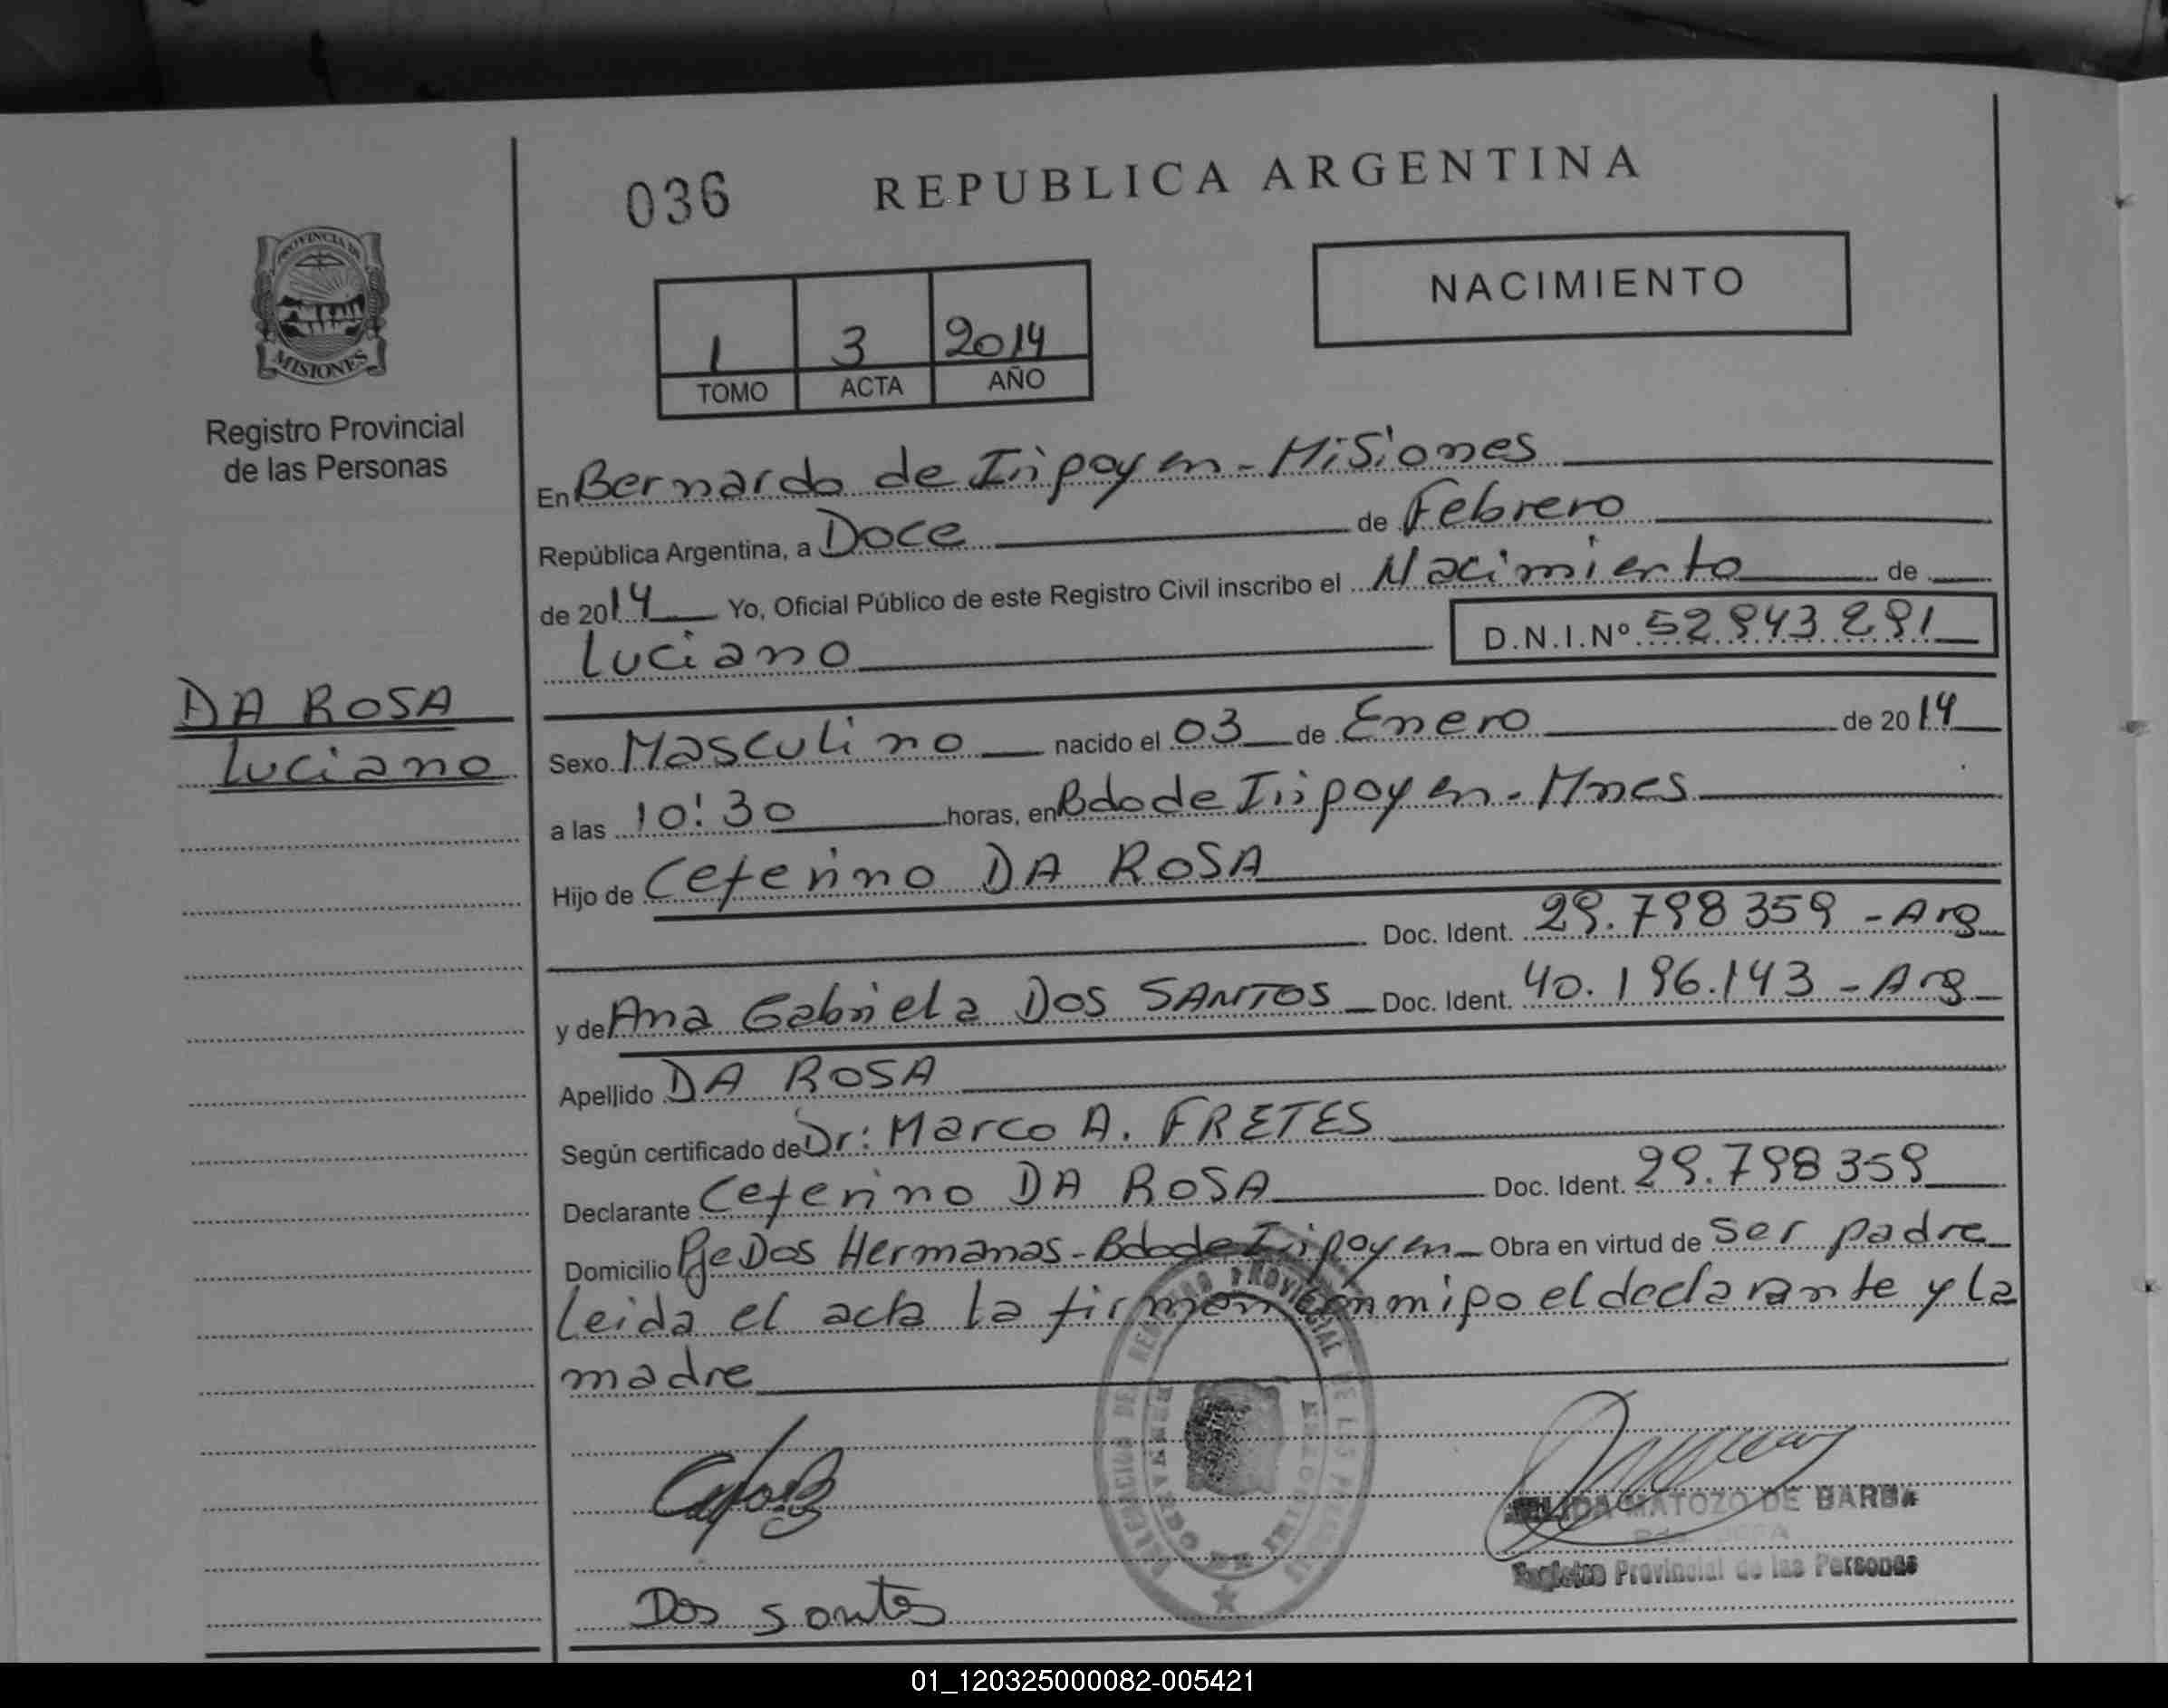 036
REPUBLICA ARGENTINA
PROVINCIA DE
MISIONES
Registro Provincial
de las Personas
NACIMIENTO
1 3 2014
TOMO ACTA AÑO
En Bernardo de Irigoyen - Misiones
República Argentina, a Doce de Febrero
de 2014 Yo, Oficial Público de este Registro Civil inscribo el Nacimiento de
Luciano
D.N.I.Nº 52.943 291
DA ROSA
Luciano
Sexo Masculino nacido el 03 de Enero de 2014
a las 10:30 horas, en Bdo de Irigoyen - Mnes
Hijo de Ceferino DA ROSA
Doc. Ident. 29.798 359 - Arg
y de Ana Gabriela DOS SANTOS Doc. Ident. 40.196.143 - Arg
Apellido DA ROSA
Según certificado de Dr: Marco A. FRETES
Declarante Ceferino DA ROSA Doc. Ident. 29.798 359
Domicilio Pje Dos Hermanas - Bdo de Irigoyen Obra en virtud de ser padre
Leida el acta la firman conmigo el declarante y la
madre
MATOZO DE BARBA
Registro Provincial de las Personas
Dos Santos
01_120325000082-005421